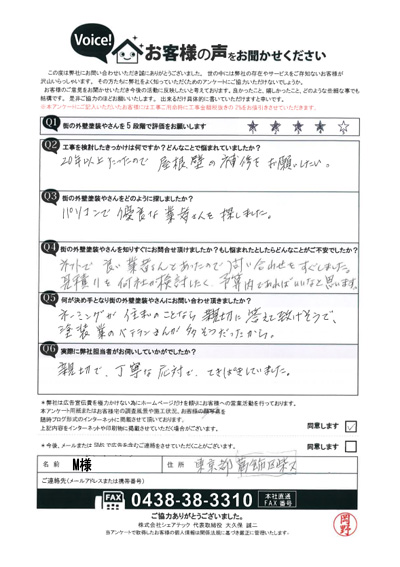 Voice!
お客様の声をお聞かせください
この度は弊社にお問い合わせいただき誠にありがとうございました。世の中には弊社の存在やサービスをご存知ないお客様が
沢山いらっしゃいます。その方たちに弊社をよく知っていただくためのアンケートにご協力いただけないでしょうか。
お客様のご意見をお聞かせいただき今後の活動に反映したいと考えております。良かったこと、嬉しかったこと、どのような些細な事でも
結構です。是非ご協力のほどお願いいたします。出来るだけ具体的に書いていただけますと幸いです。
Q1 街の外壁塗装やさんを5段階で評価をお願いします ★ ★ ★ ★ ☆
Q2 工事を検討したきっかけは何ですか?どんなことで悩まれていましたか?
20年以上たったので 屋根壁の補修をお願いしたい。
Q3 街の外壁塗装やさんをどのように探しましたか?
パソコンで優良な業者さんを探しました。
Q4 街の外壁塗装やさんを知りすぐにお問合せ頂けましたか?もし悩まれたとしたらどんなことがご不安でしたか?
ネットで良い業者さんとあったので問い合わせをすぐしました。
見積りを何社か検討したく、予算内であればいいなと思います。
Q5 何が決め手となり街の外壁塗装やさんにお問い合わせ頂きましたか?
ネーミングが住まいのことなら親切に答えて頂けそうで、
塗装業のベテランさんが多そうだったから。
Q6 実際に弊社担当者がお伺いしていかがでしたか?
親切で、丁寧な応対で、てきぱきしていました。
※弊社は広告宣伝費を極力かけない為にホームページだけを頼りにお客様への営業活動を行っております。
本アンケート用紙またはお客様宅の調査風景や施工状況、お客様の顔写真を
随時ブログ形式のインターネットに掲載させて頂いております。
上記内容をインターネットや印刷物に掲載させていただく場合がございます。 同意します ✓
※今後、メールまたはSMSで広告を含むご連絡をさせていただくことがございます。 同意します
名前 M様 住所 東京都
ご連絡先(メールアドレスまたは携帯番号)
FAX 0438-38-3310 本社直通 FAX番号
ご協力ありがとうございました。
株式会社シェアテック 代表取締役 大久保 誠二
当アンケートで取得したお客様の個人情報は関係法規に基づき厳正に管理いたします。
岡野